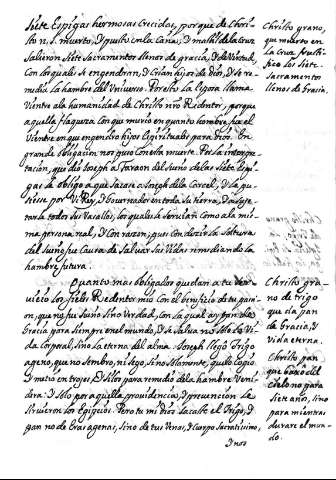 siete Espigas hermosas Crecidas, porque de Chris-
to n. s. muerto, y puesto en la Cana, y matiz de la cruz
salieron siete Sacramentos llenos de gracia, y de Virtud,
con los quales se engendran, y crian hijos de Dios, y se re-
media la hambre del Vniuerso. Por esto la esposa llama
Vientre a la humanidad de Christo nro Redentor, porque
aquella flaqueza con que murio en quanto hombre, fue el
Vientre en que engendro hijos espirituales para Dios. En
grande obligacion nos puso con esta muerte. Por la interpre-
tacion, que dio Joseph a Faraon del sueño de las siete Espi-
gas le obligo a que sacase a Joseph de la Carcel, y la pu-
siese por Vi Rey, y Gouernador en toda su tierra,
a todos sus Vasallos, los quales le seruian como a la mis-
ma persona real, y con razon; pues con dezir la soltura
del sueño fue causa de saluar sus Vidas remediando la
hambre futura.
Quanto mas obligados quedan a tu
Redentor mio con el beneficio de tu
que no fue sueño sino Verdad, con la qual ay pan de la
Gracia para siempre en el mundo, y se salua no solo la Vi-
da Corporal, sino la eterna del alma. Joseph llego trigo
ageno, que no sembro, ni sego, sino solamente, que lo cogio
y metio en trojes, y silos para remedio de la hambre Veni-
dera: y solo por aquella prouidencia, y preuencion le
siruieron los Egipcios. Pero tu mi Dios sacaste el Trigo, y
pan no de eras agenas, sino de tus Venas, y Cuerpo Sacratissimo,
y nos
Christo grano,
que muerto en
la Cruz
co los siete
Sacramentos
llenos de Gracia.
Christo gra-
no de trigo
que da pan
de Gracia, y
vida eterna.
Christo pan
que
cielo no para
siete años, sino
para mientras
durare el mun-
do.